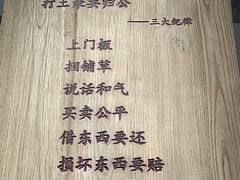 打土豪要归公
——三大纪律
上门板
捆铺草
说话和气
买卖公平
借东西要还
损坏东西要赔